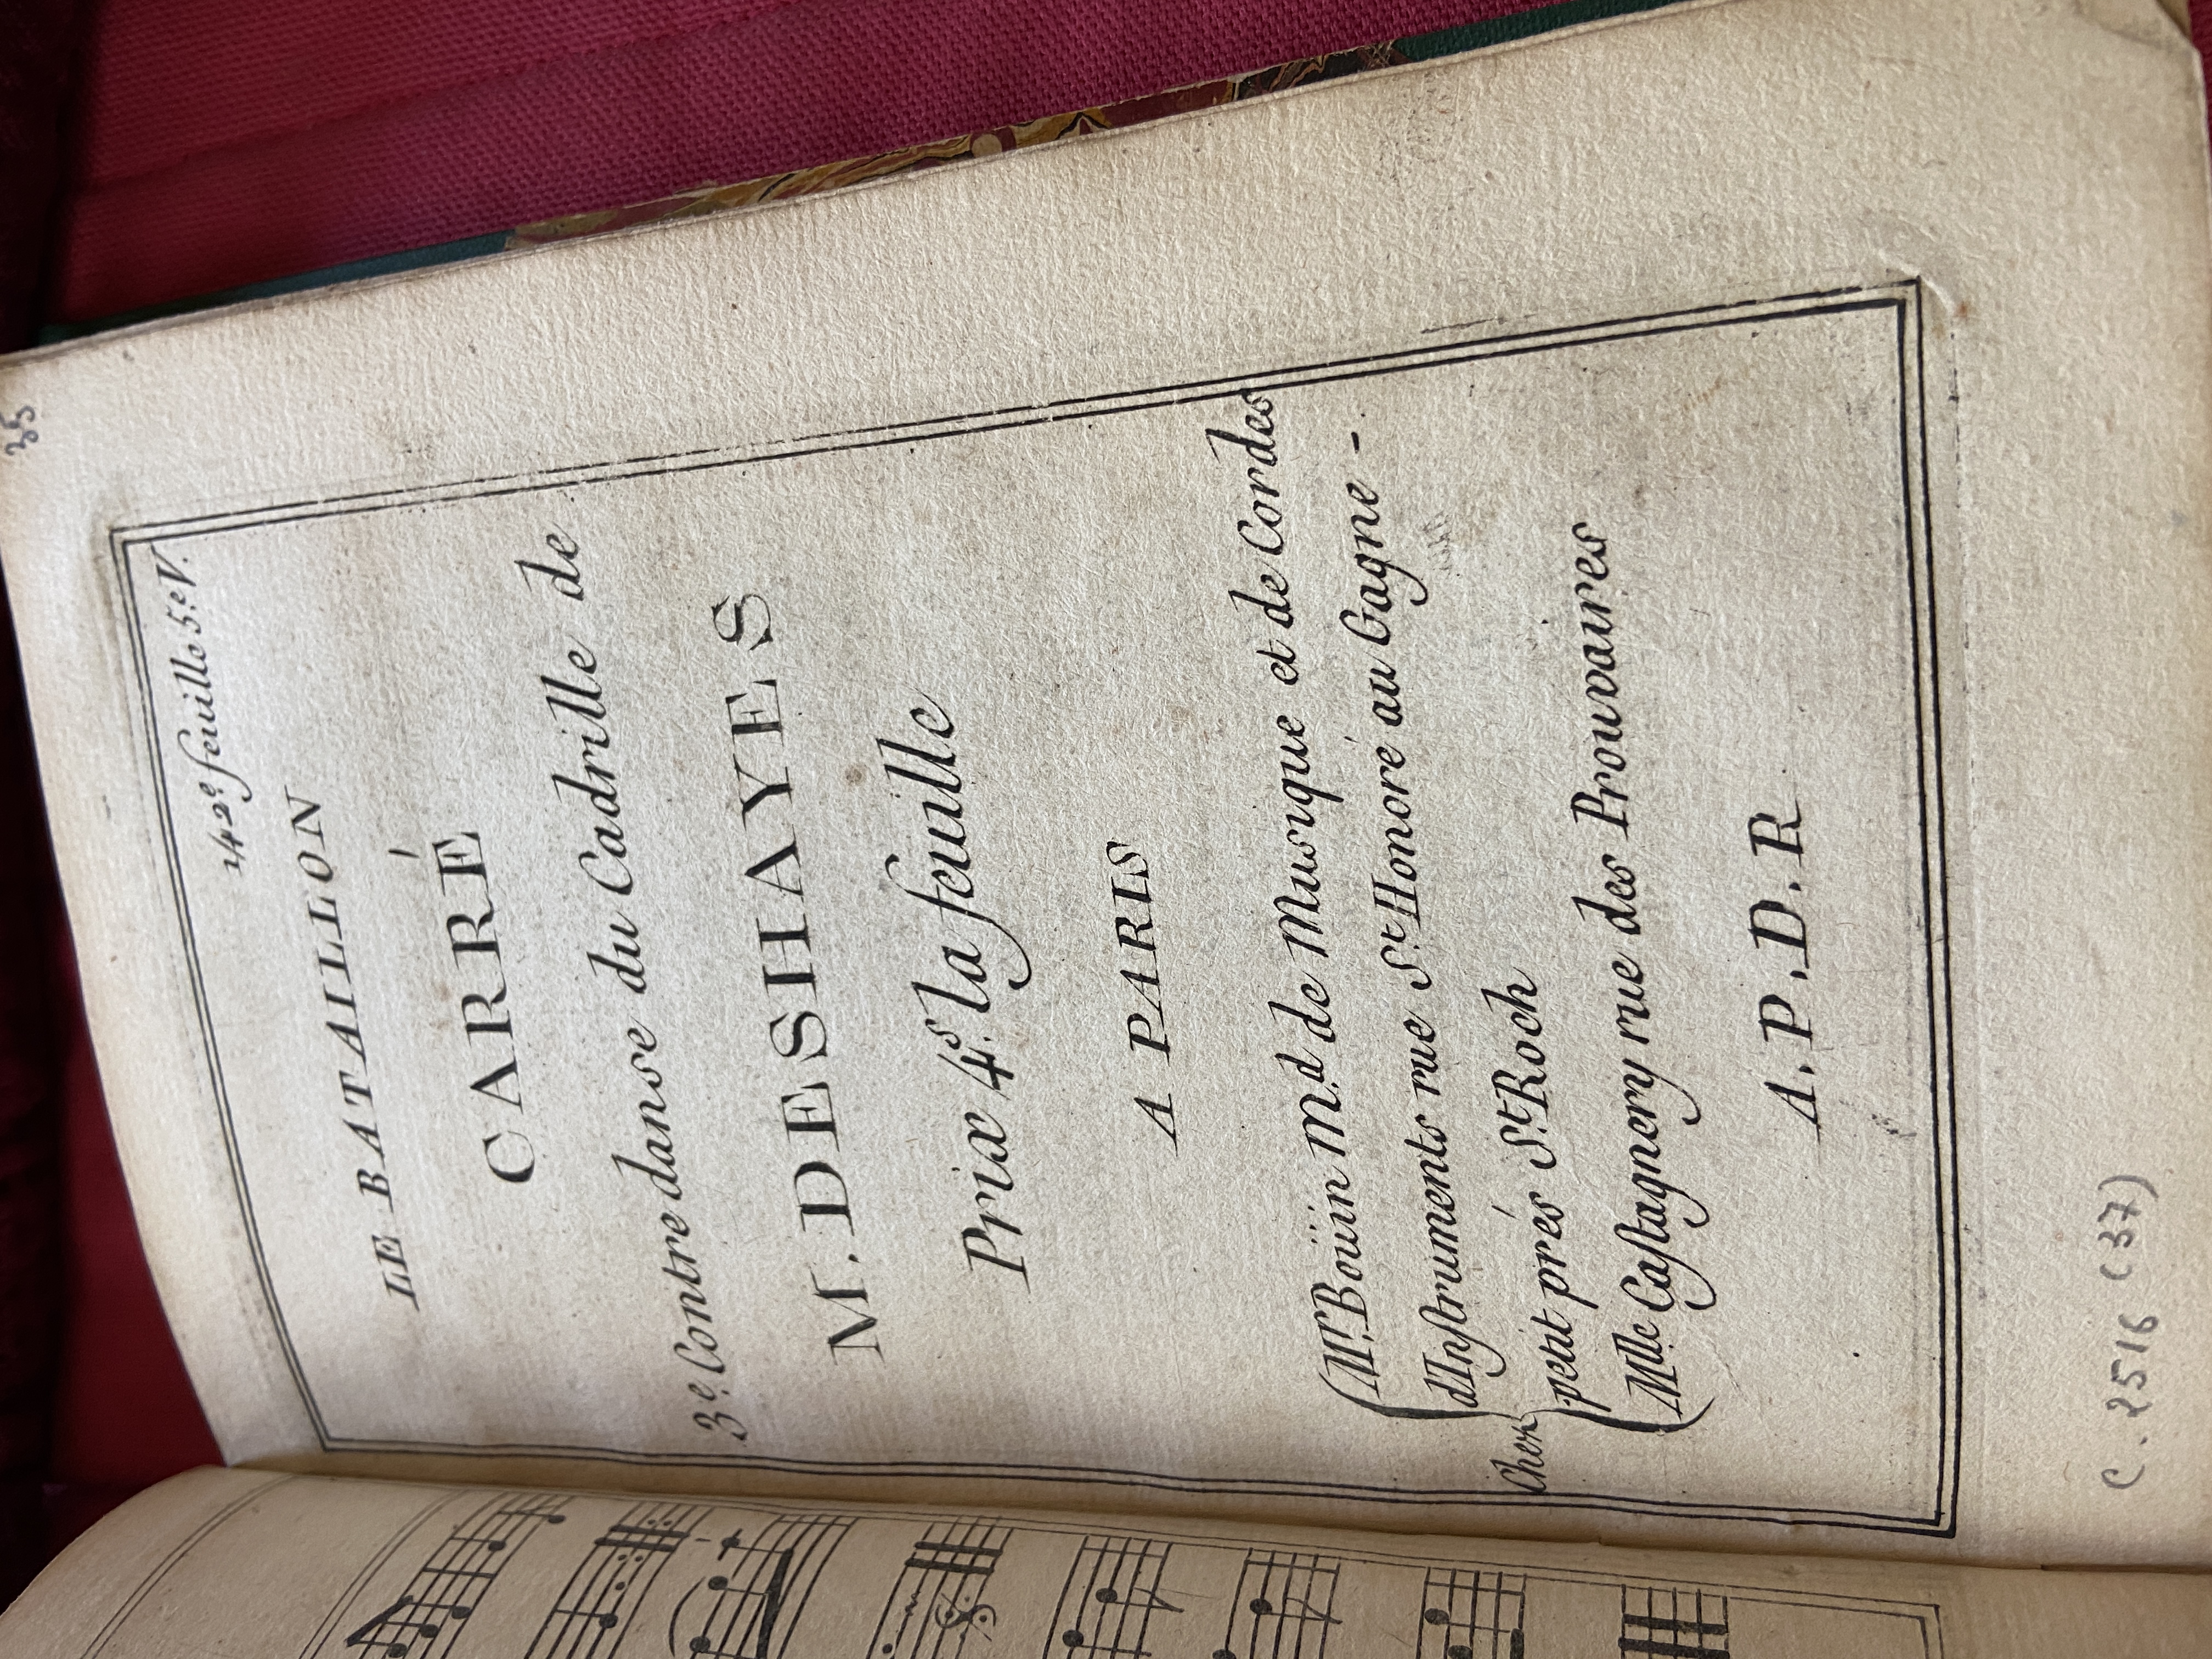 35
142.e feuille 5.e V.
LE BATAILLON
CARRÉ
3.e Contre danse du Cadrille de
M. DESHAYES
Prix 4.s la feuille
A PARIS
Chez
M.r Boüin M.d de Musique et de Cordes
d'Instruments rue S.t Honoré au Gagne -
petit prés S.t Roch
M.lle Castagnery rue des Prouvaires
A. P. D. R
C. 2516 (37)